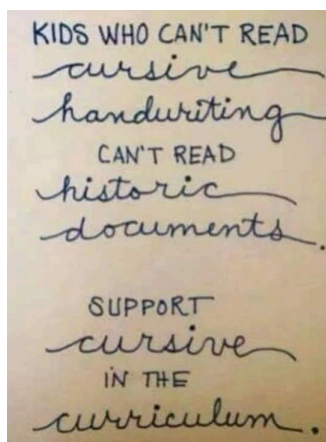 KIDS WHO CAN'T READ
cursive
handwriting
CAN'T READ
historic
documents.
SUPPORT
cursive
IN THE
curriculum.